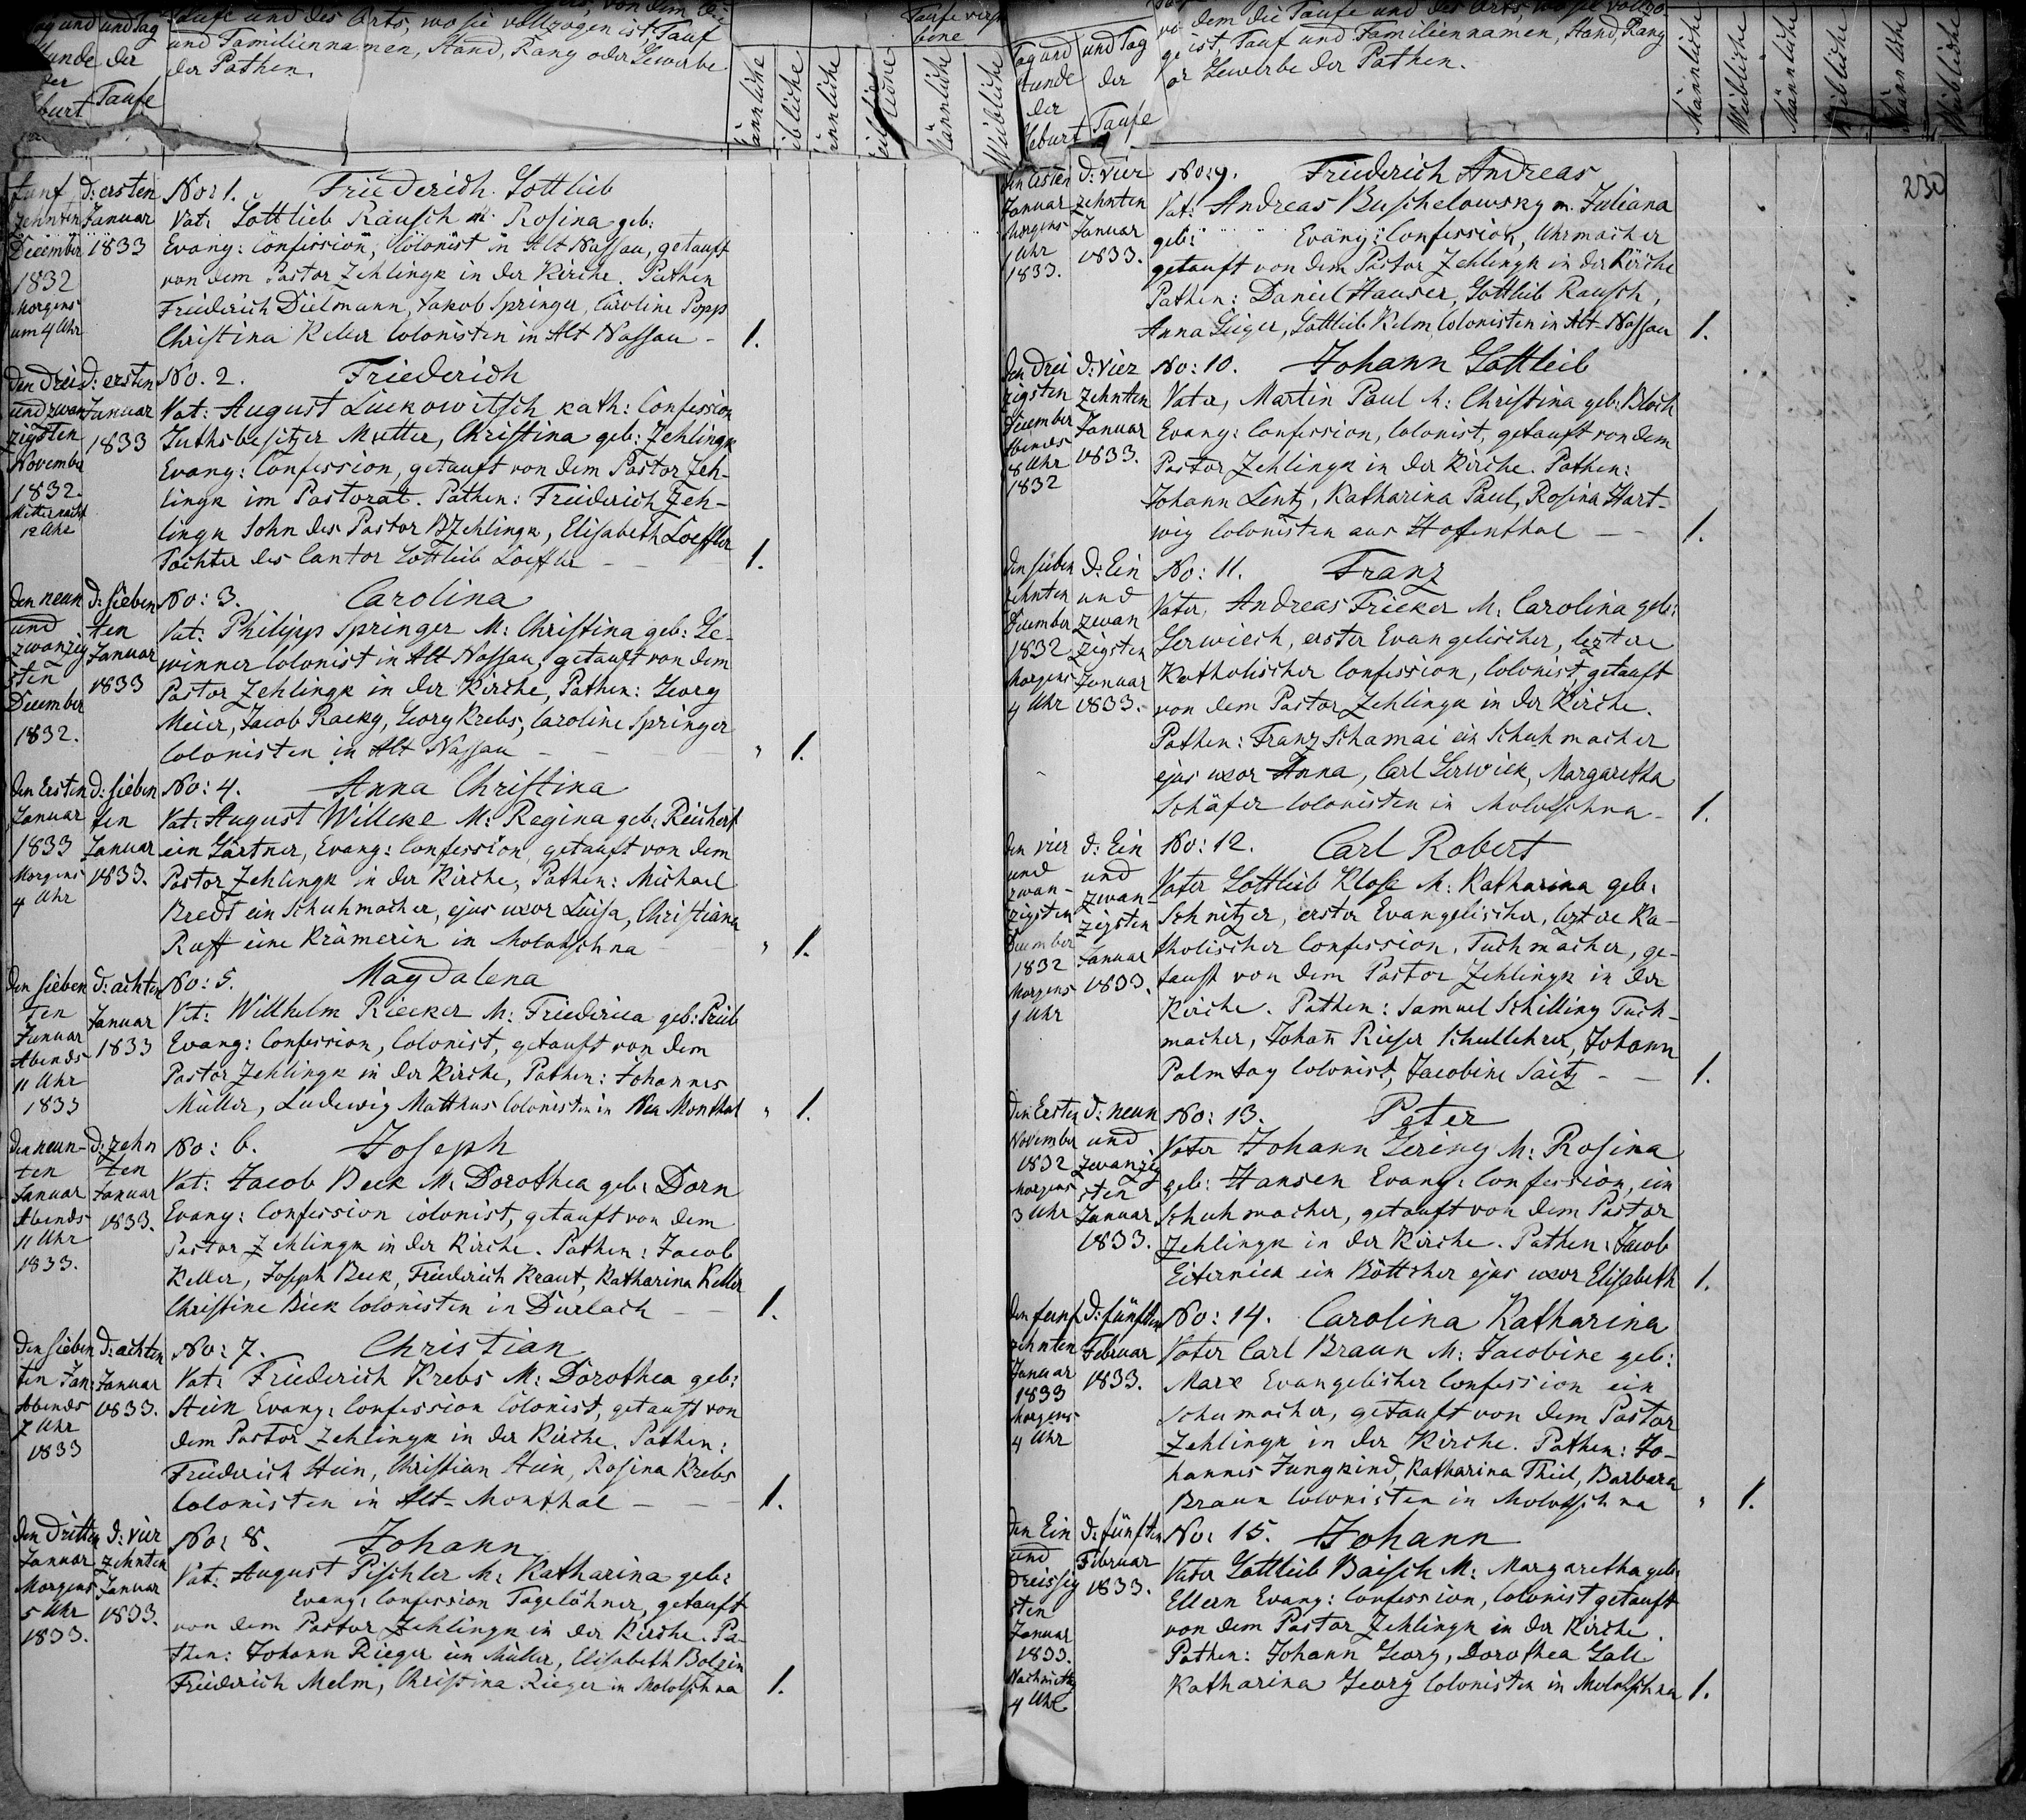 Taufe und des Orts, wo sie vollzogen ist, Tauf
und Familiennamen, Stand, Rang oder Gewerbe
der Pathen.
und Tag
der
Taufe
Männliche
Weibliche
fünf
zehnten
December
1832
Morgens
um 4 Uhr
d: ersten
Januar
1833
No: 1. Friederich Gottlieb
Vat: Gottlieb Rausch M: Rosina geb:
Evang: Confession, Colonist in Alt Nassau, getauft
von dem Pastor Zehlingk in der Kirche. Pathen
Friederich Dielmann, Jakob Springer, Caroline Popp
Christina Keller Colonisten in Alt Nassau - 1.
den drei
und zwan
zigsten
November
1832.
Mitternacht
12 Uhr
d: ersten
Januar
1833
No. 2. Friederich
Vat: August Luckowitsch kath: Confession
Guthsbesitzer Mutter, Christina geb: Zehlingk
Evang: Confession, getauft von dem Pastor Zeh-
lingk im Pastorat. Pathen: Friederich Zeh-
lingk Sohn des Pastor Zehlingk, Elisabeth Loeffler
Tochter des Cantor Gottlieb Loeffler - - 1.
den neun
und
zwanzig
sten
December
1832.
d: sieben
ten
Januar
1833
No: 3. Carolina
Vat: Philipp Springer M: Christina geb: Ge-
winner Colonist in Alt Nassau, getauft von dem
Pastor Zehlingk in der Kirche, Pathen: Georg
Meier, Jacob Racky, Georg Krebs, Caroline Springer
Colonisten in Alt Nassau - - - " 1.
den Ersten
Januar
1833
Morgens
4 Uhr
d: sieben
ten
Januar
1833.
No: 4. Anna Christina
Vat: August Willcke M: Regina geb: Reichert
ein Gärtner, Evang: Confession, getauft von dem
Pastor Zehlingk in der Kirche, Pathen: Michael
Bredt ein Schuhmacher, ejus uxor Luisa, Christiana
Ruff eine Krämerin in Molotschna - " 1.
den sieben
ten
Januar
Abends
11 Uhr
1833
d: achten
Januar
1833
No: 5. Magdalena
Vat: Willhelm Riecker M: Friederica geb: Prieb
Evang: Confession, Colonist, getauft von dem
Pastor Zehlingk in der Kirche, Pathen: Johannes
Müller, Ludewig Matthus Colonisten in Neu Monthal " 1.
den neun-
ten
Januar
Abends
11 Uhr
1833.
d: zehn
ten
Januar
1833.
No: 6. Joseph
Vat: Jacob Beck M: Dorothea geb: Dorn
Evang: Confession Colonist, getauft von dem
Pastor Zehlingk in der Kirche. Pathen: Jacob
Keller, Joseph Beck, Friederich Kraut, Katharina Keller
Christine Beck Colonisten in Durlach - - 1.
den sieben
ten Jan:
Abends
7 Uhr
1833
d: achten
Januar
1833.
No: 7. Christian
Vat: Friederich Krebs M: Dorothea geb:
Stein Evang: Confession Colonist, getauft von
dem Pastor Zehlingk in der Kirche. Pathen:
Friederich Stein, Christian Stein, Rosina Krebs
Colonisten in Alt-Monthal - - - 1.
den dritten
Januar
Morgens
5 Uhr
1833.
d: vier
zehnten
Januar
1833.
No: 8. Johann
Vat: August Pischler M: Katharina geb:
Evang: Confession Tagelöhner, getauft
von dem Pastor Zehlingk in der Kirche. Pa-
then: Johann Rieger ein Müller, Elisabeth Bolzin
Friederich Melm, Christina Rieger in Molotschna 1.
dem die Taufe und des Orts, wo sie vollzo
ist, Tauf und Familiennamen, Stand, Rang
Gewerbe der Pathen.
und Tag
der
Taufe
Männliche
Weibliche
Männliche
Weibliche
Männliche
Weibliche
230
den ersten
Januar
Morgens
1 Uhr
1833.
d: vier
zehnten
Januar
1833.
No: 9. Friederich Andreas
Vat: Andreas Buschelowsky M. Juliana
geb: Evang: Confession, Uhrmacher
getauft von dem Pastor Zehlingk in der Kirche
Pathen: Daniel Hauser, Gottlieb Rausch,
Anna Geiger, Gottlieb Kelm, Colonisten in Alt-Nassau 1.
den drei
zigsten
December
Abends
8 Uhr
1832
d: vier
zehnten
Januar
1833.
No: 10. Johann Gottlieb
Vater, Martin Paul M: Christina geb: Bloch
Evang: Confession, Colonist, getauft von dem
Pastor Zehlingk in der Kirche. Pathen:
Johann Lentz, Katharina Paul, Rosina Hart-
wig Colonisten aus Hoffenthal - - 1.
den sieben
zehnten
December
1832
Morgens
4 Uhr
d: Ein
und
zwan
zigsten
Januar
1833.
No: 11. Franz
Vater, Andreas Fricker M: Carolina geb:
Gerwiech, erster Evangelischer, leztere
Katholischer Confession, Colonist, getauft
von dem Pastor Zehlingk in der Kirche.
Pathen: Franz Schamai ein Schuhmacher
ejus uxor Anna, Carl Gerwick, Margaretha
Schäfer Colonisten in Molotschna - 1.
den vier
und
zwan-
zigsten
December
1832
Morgens
1 Uhr
d: Ein
und
zwan-
zigsten
Januar
1833.
No: 12. Carl Robert
Vater Gottlieb Klose M: Katharina geb:
Schnitzer, erster Evangelischer, leztere Ka-
tholischer Confession, Tuchmacher, ge-
tauft von dem Pastor Zehlingk in der
Kirche. Pathen: Samuel Schilling Tuch-
macher, Johann Rieser Schullehrer, Johann
Palmtag Colonist, Jacobine Saitz - - 1.
den Ersten
November
1832
Morgens
3 Uhr
d: neun
und
zwanzig
sten
Januar
1833.
No: 13. Peter
Vater Johann Gering M: Rosina
geb: Hansen Evang: Confession, ein
Schuhmacher, getauft von dem Pastor
Zehlingk in der Kirche. Pathen: Jacob
Eiternick ein Böttcher ejus uxor Elisabeth 1.
den fünf
zehnten
Januar
1833
Morgens
4 Uhr
d: fünften
Februar
1833.
No: 14. Carolina Katharina
Vater Carl Braun M: Jacobine geb:
Marx Evangelischer Confession ein
Schumacher, getauft von dem Pastor
Zehlingk in der Kirche. Pathen: Jo-
hannes Jungkind, Katharina Thiel, Barbara
Braun Colonisten in Molotschna " 1.
den Ein
und
dreissig
sten
Januar
1833.
Nachmittg
4 Uhr
d: fünften
Februar
1833.
No: 15. Johann
Vater Gottlieb Baisch M: Margaretha geb:
Ellern Evang: Confession, Colonist getauft
von dem Pastor Zehlingk in der Kirche.
Pathen: Johann Georg, Dorothea Gall
Katharina Georg Colonisten in Molotschna 1.